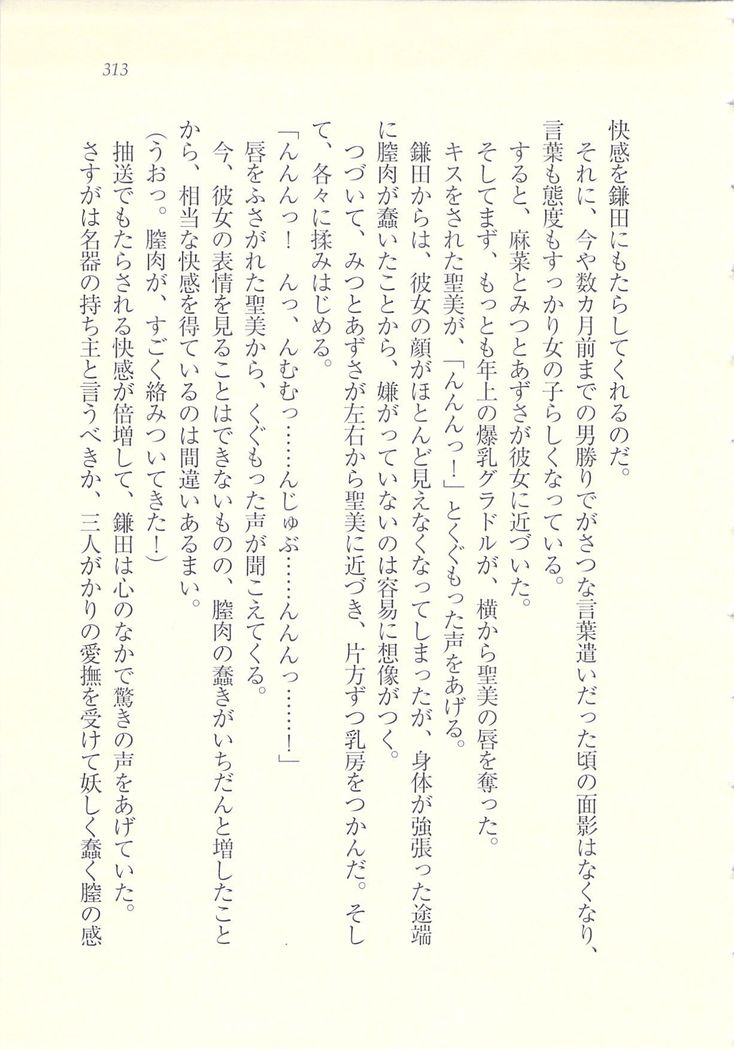 313
快感を鎌田にもたらしてくれるのだ。
それに、今や数カ月前までの男勝りでがさつな言葉遣いだった頃の面影はなくなり、
言葉も態度もすっかり女の子らしくなっている。
すると、麻菜とみつとあずさが彼女に近づいた。
そしてまず、もっとも年上の爆乳グラドルが、横から聖美の唇を奪った。
キスをされた聖美が、「んんんっ！」とくぐもった声をあげる。
鎌田からは、彼女の顔がほとんど見えなくなってしまったが、身体が強張った途端
に膣肉が蠢いたことから、嫌がっていないのは容易に想像がつく。
つづいて、みつとあずさが左右から聖美に近づき、片方ずつ乳房をつかんだ。そし
て、各々に揉みはじめる。
「んんんっ！　んっ、んむむっ……んじゅぶ……んんんっ……！」
唇をふさがれた聖美から、くぐもった声が聞こえてくる。
今、彼女の表情を見ることはできないものの、膣肉の蠢きがいちだんと増したこと
から、相当な快感を得ているのは間違いあるまい。
（うおっ。膣肉が、すごく絡みついてきた！）
抽送でもたらされる快感が倍増して、鎌田は心のなかで驚きの声をあげていた。
さすがは名器の持ち主と言うべきか、三人がかりの愛撫を受けて妖しく蠢く膣の感